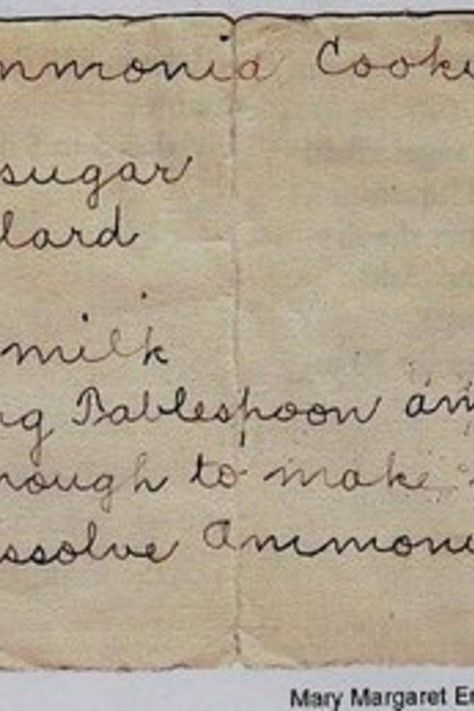 mmonia Cooki
sugar
lard
milk
ng Tablespoon am
nough to make
issolve Ammoni
Mary Margaret Er